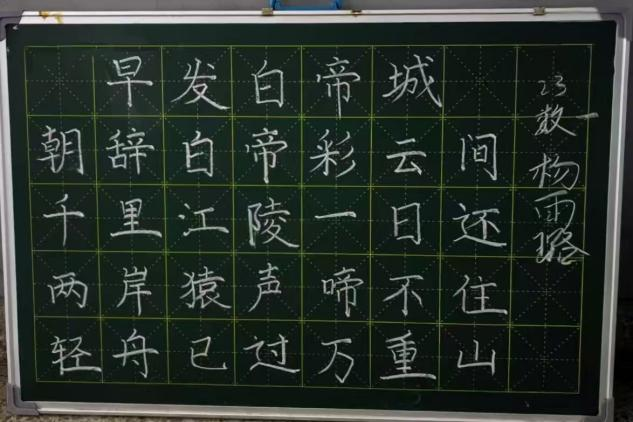 早发白帝城
朝辞白帝彩云间
千里江陵一日还
两岸猿声啼不住
轻舟已过万重山
23
数一
杨雨璐